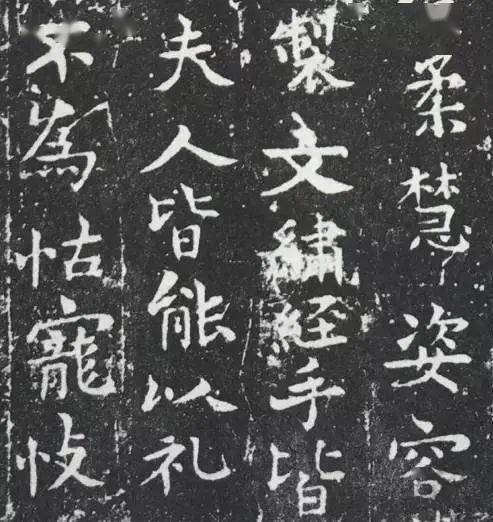 柔慧姿容
製文繡経手皆
夫人皆能以礼
不為怙寵忮